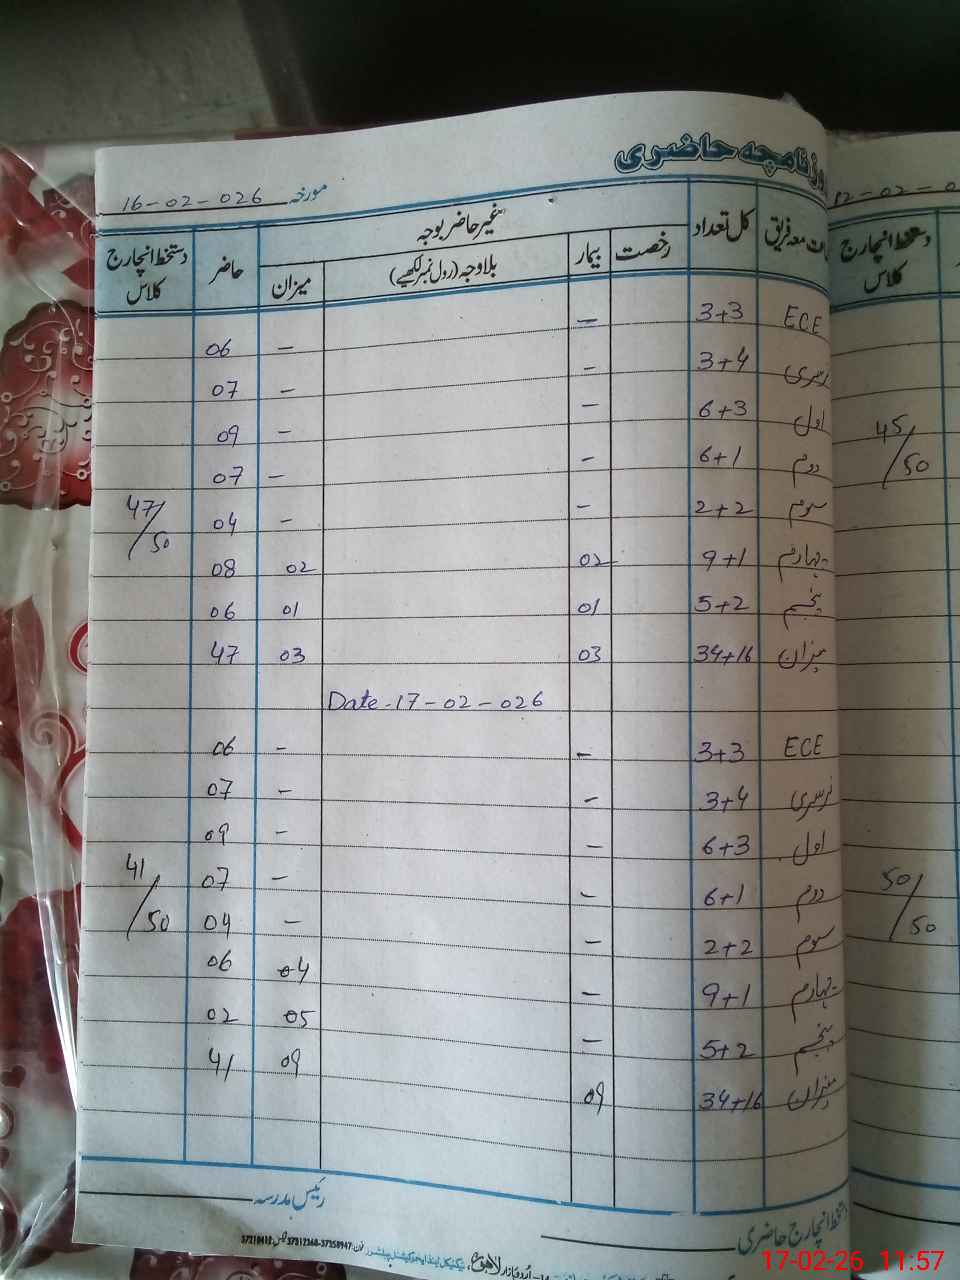 روزنامچہ حاضری
مورخہ 16-02-026
معہ فریق | کل تعداد | غیر حاضر بوجہ | حاضر | دستخط انچارج کلاس
رخصت | بیمار | بلاوجہ (رول نمبر لکھیے) | میزان
ECE 3+3 – – 06
نرسری 3+4 – – 07
اول 6+3 – – 09
دوم 6+1 – – 07
سوم 2+2 – – 04
چہارم 9+1 02 02 08
پنجم 5+2 01 01 06
میزان 34+16 03 03 47
47/50
Date-17-02-026
ECE 3+3 – – 06
نرسری 3+4 – – 07
اول 6+3 – – 09
دوم 6+1 – – 07
سوم 2+2 – – 04
چہارم 9+1 – 04 06
پنجم 5+2 – 05 02
میزان 34+16 09 09 41
41/50
رئیس مدرسہ
دستخط انچارج حاضری
لاہور
دستخط انچارج کلاس
45/50
50/50
17-02-26 11:57